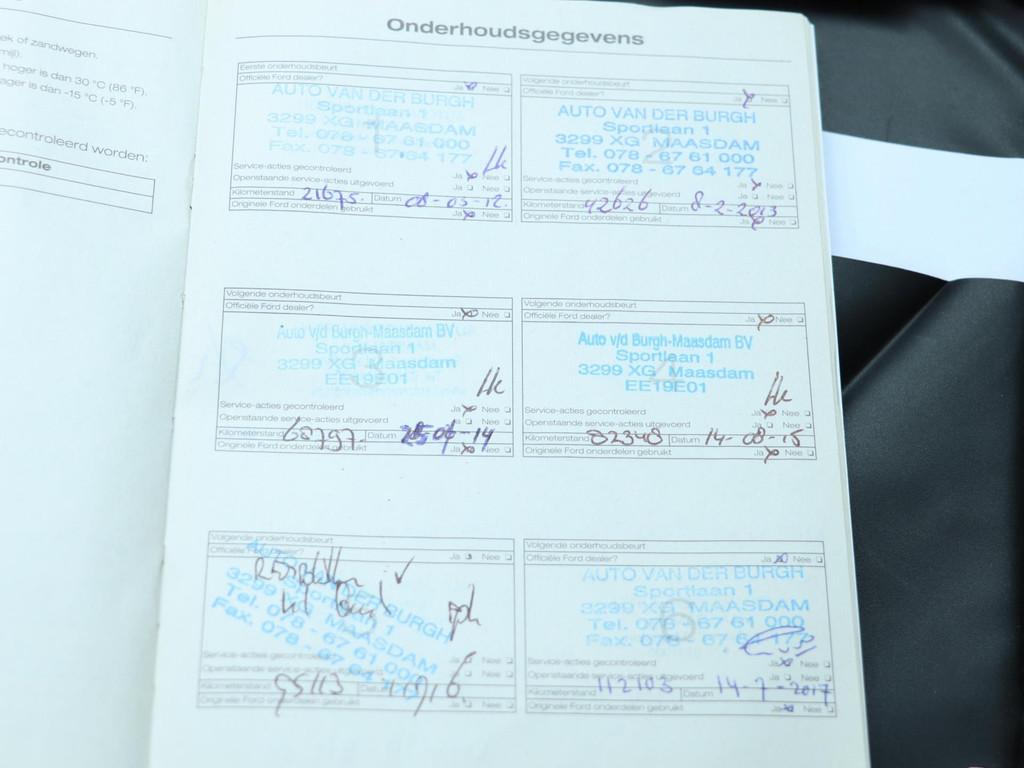 ek of zandwegen.
mijl).
hoger is dan 30 °C (86 °F).
ager is dan -15 °C (-5 °F).
econtroleerd worden:
ontrole
Onderhoudsgegevens
Eerste onderhoudsbeurt
Officiële Ford dealer? Ja Nee
AUTO VAN DER BURGH
Sportlaan 1
3299 XG MAASDAM
Tel. 078 - 67 61 000
Fax. 078 - 67 64 177
Service-acties gecontroleerd Ja Nee
Openstaande service-acties uitgevoerd Ja Nee
Kilometerstand 21675. Datum 08-03-12.
Originele Ford onderdelen gebruikt Ja Nee
Volgende onderhoudsbeurt
Officiële Ford dealer? Ja Nee
AUTO VAN DER BURGH
Sportlaan 1
3299 XG MAASDAM
Tel. 078 - 67 61 000
Fax. 078 - 67 64 177
Service-acties gecontroleerd Ja Nee
Openstaande service-acties uitgevoerd Ja Nee
Kilometerstand 42626 Datum 8-2-2013
Originele Ford onderdelen gebruikt Ja Nee
Volgende onderhoudsbeurt
Officiële Ford dealer? Ja Nee
Auto v/d Burgh-Maasdam BV
Sportlaan 1
3299 XG Maasdam
EE19E01
Service-acties gecontroleerd Ja Nee
Openstaande service-acties uitgevoerd Ja Nee
Kilometerstand 68797. Datum 06-14
Originele Ford onderdelen gebruikt Ja Nee
Volgende onderhoudsbeurt
Officiële Ford dealer? Ja Nee
Auto v/d Burgh-Maasdam BV
Sportlaan 1
3299 XG Maasdam
EE19E01
Service-acties gecontroleerd Ja Nee
Openstaande service-acties uitgevoerd Ja Nee
Kilometerstand 82348 Datum 14-08-15
Originele Ford onderdelen gebruikt Ja Nee
Volgende onderhoudsbeurt
Officiële dealer? Ja Nee
DER BURGH
3299 MAASDAM
Tel. 078 - 67 61 000
Fax. 078 - 67 64
Service-acties gecontroleerd Nee
Openstaande service-acties uitgevoerd Ja Nee
Kilometerstand 95113
Originele Ford onderdelen gebruikt Ja Nee
Volgende onderhoudsbeurt
Officiële Ford dealer? Ja Nee
AUTO VAN DER BURGH
Sportlaan 1
3299 XG MAASDAM
Tel. 078 - 67 61 000
Fax. 078 - 67 6
Service-acties gecontroleerd Ja Nee
Openstaande service-acties uitgevoerd Ja Nee
Kilometerstand 112103 Datum 14-7-2017
Originele Ford onderdelen gebruikt Ja Nee